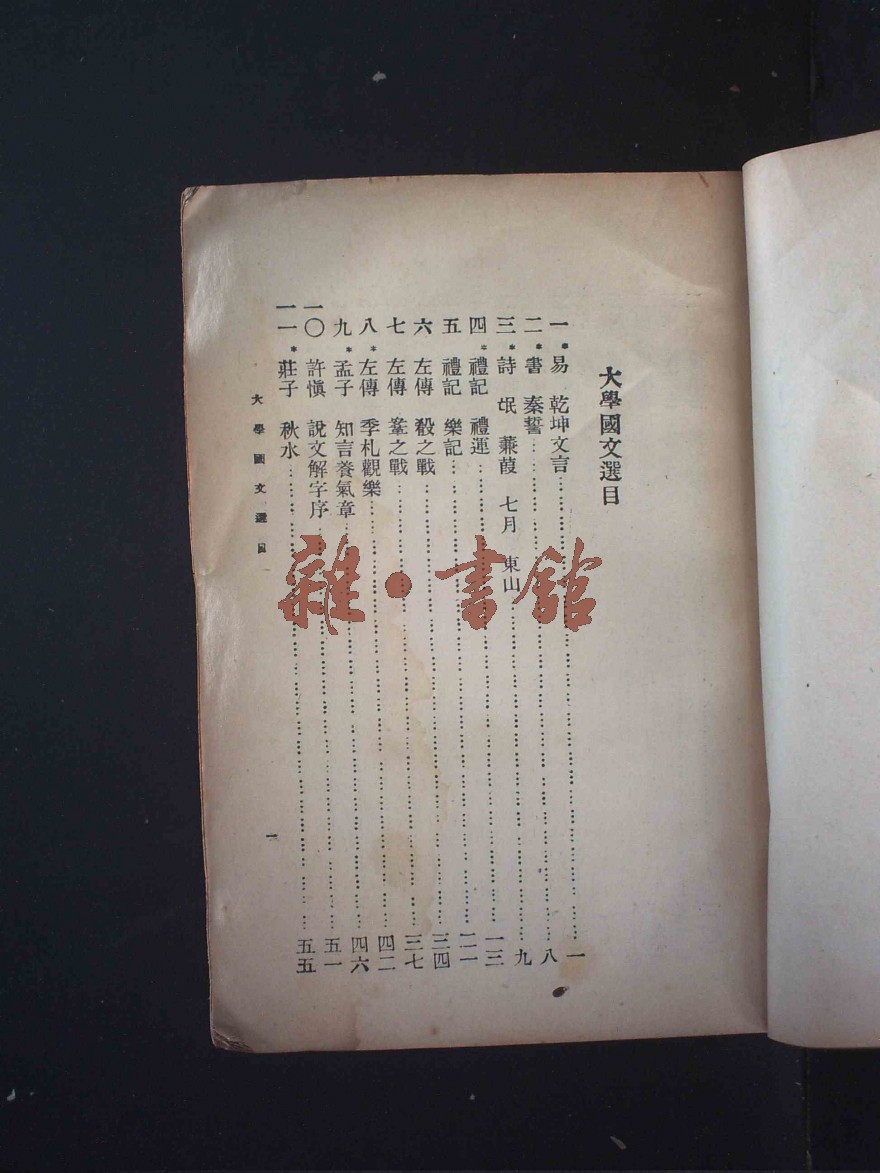 大學國文選目
一 *易 乾坤文言……一
二 *書 秦誓……八
三 *詩 氓 蒹葭 七月 東山……九
四 *禮記 禮運……一三
五 禮記 樂記……二一
六 左傳 殽之戰……三四
七 左傳 鞌之戰……三七
八 *左傳 季札觀樂……四二
九 *孟子 知言養氣章……四六
一〇 許愼 說文解字序……五一
一一 *莊子 秋水……五五
大學國文選目
一
雜·書館